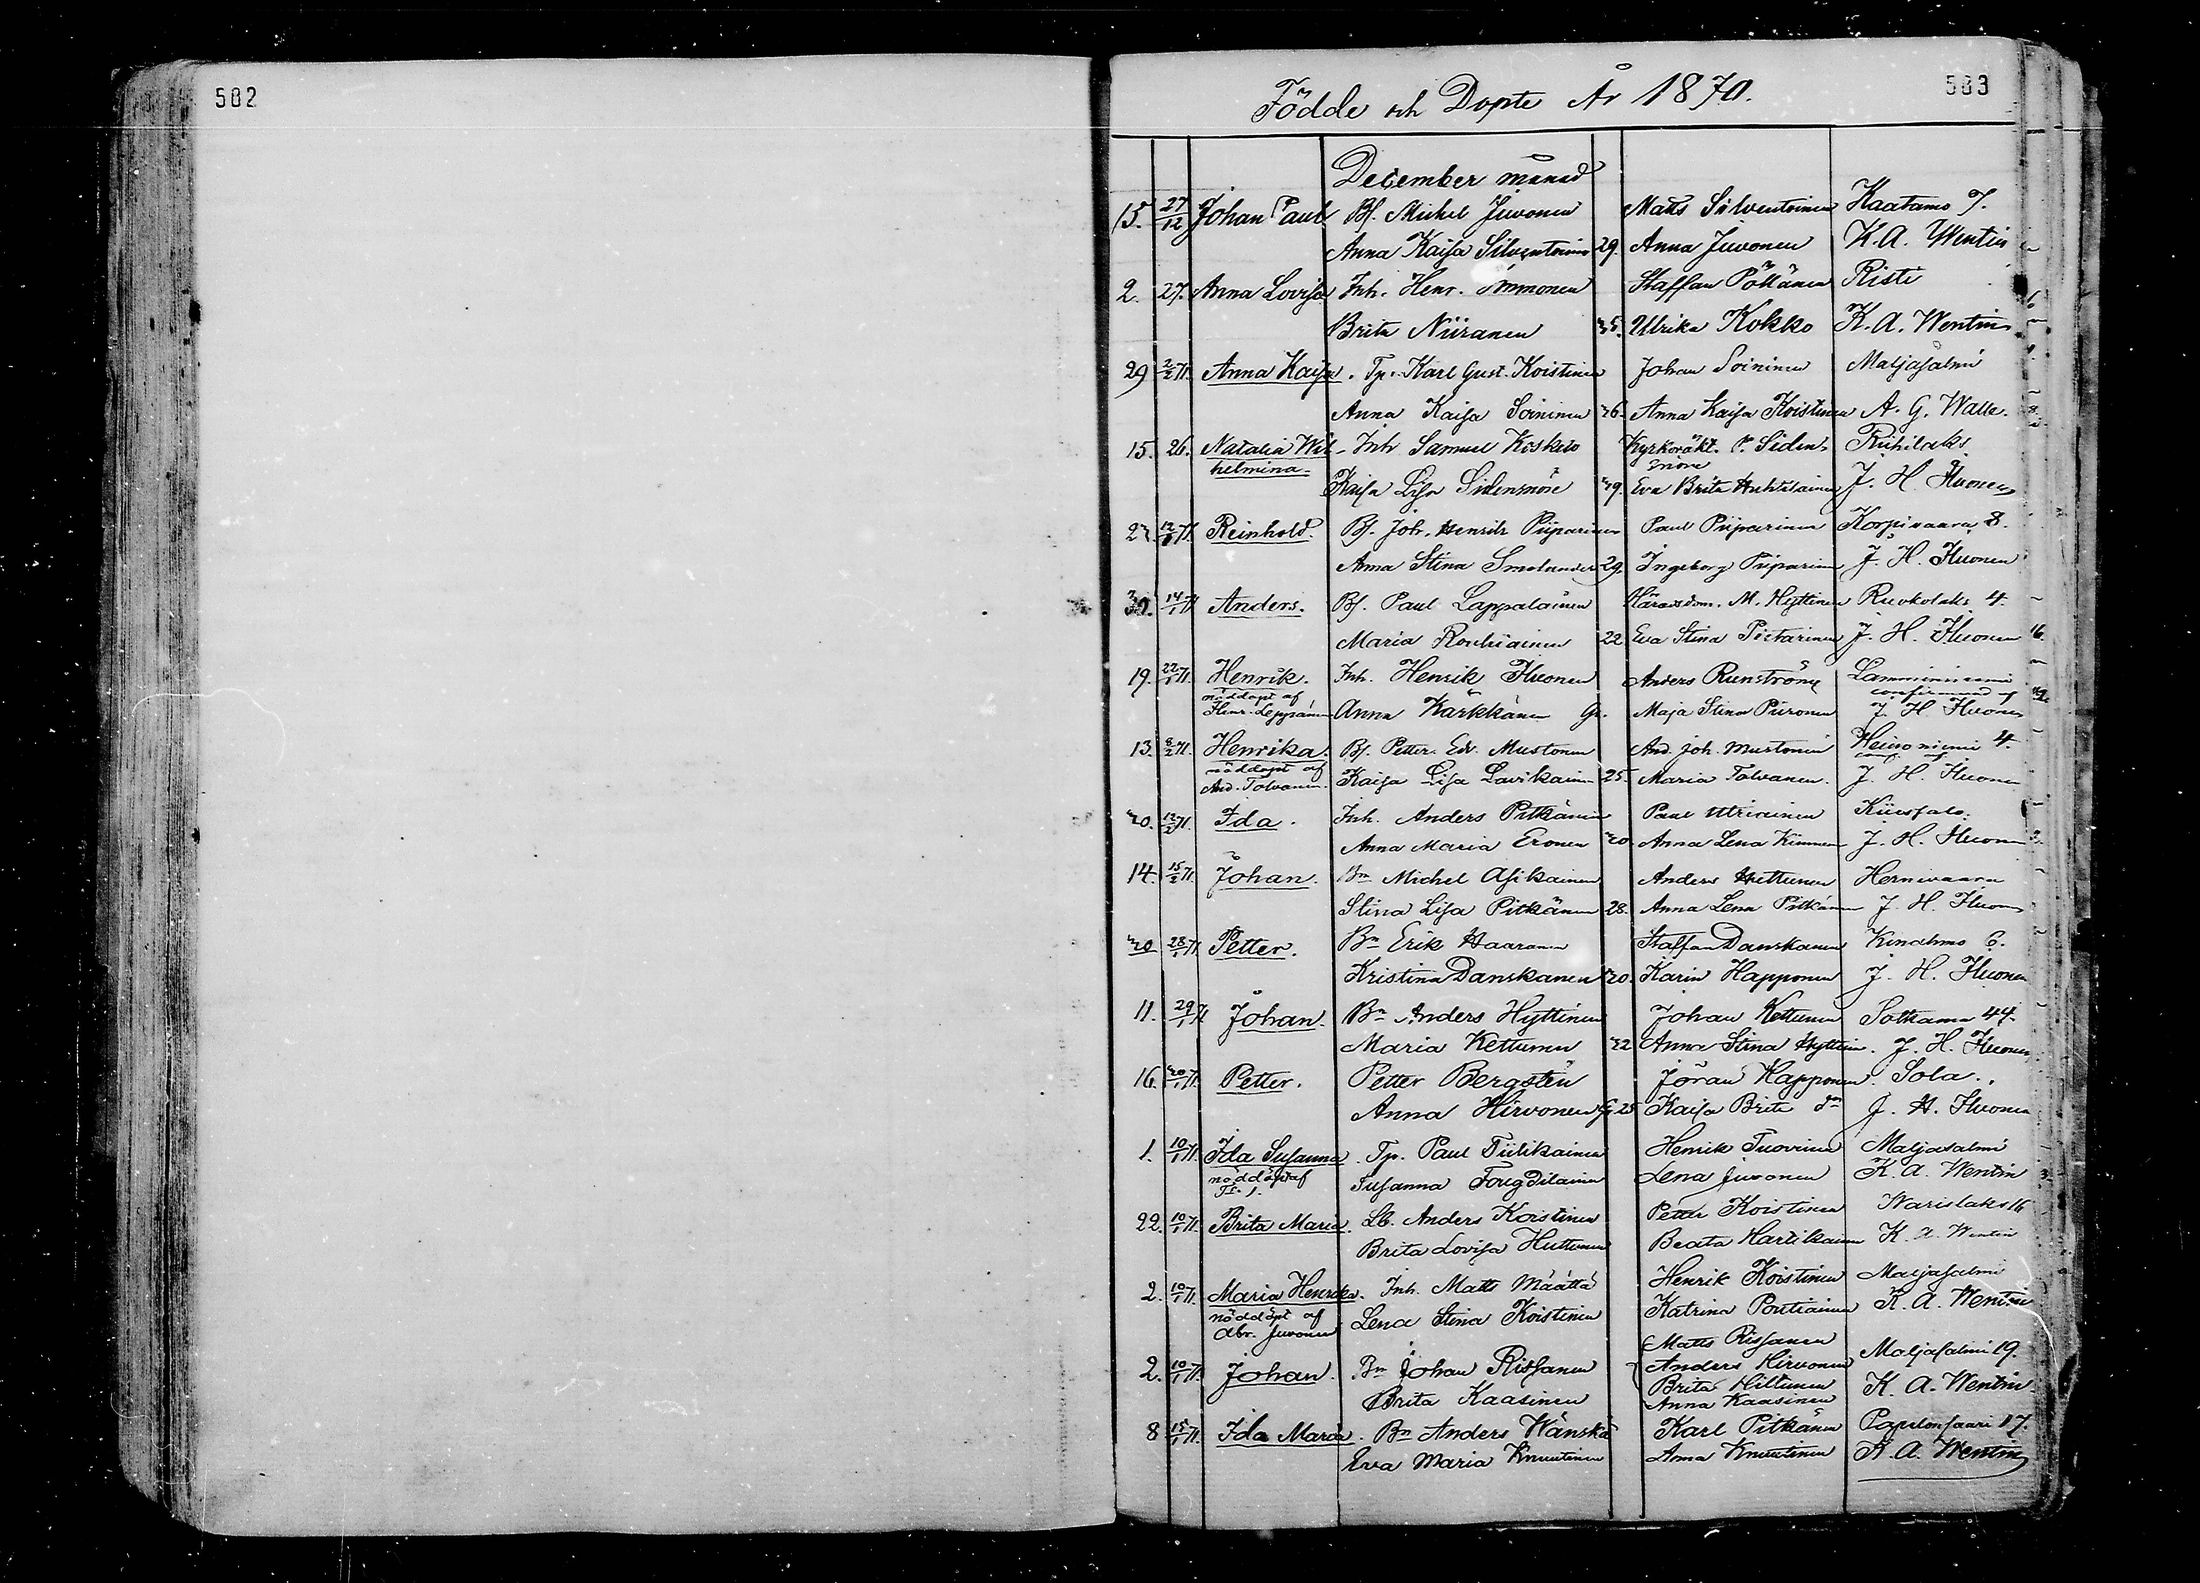 582
583
Födde och Döpte År 1870.
December månad
15. 27/12 Johan Paul Bf. Michel Juvonen Matts Silventoinen Kaatamo 7.
Anna Kaisa Silventoinen 29. Anna Juvonen K. A. Wentin
2. 27. Anna Lovisa Inh. Henr. Immonen Staffan Pöllänen Risti
Brita Niiranen 35. Ulrika Kokko K. A. Wentin
29 2/2 71. Anna Kaisa. Tp. Karl Gust. Koistinen Johan Soininen Maljasalmi
Anna Kaisa Soininen 26. Anna Kaisa Koistinen A. G. Walle.
15. 26. Natalia Wil- Inh Samuel Koskelo Kyrkovákt. P. Siden- Riihilaks.
helmina. snöre
Kaisa Lisa Sidensnöre 29. Eva Brita Huhtilainen J. H. Ihuonen
27. 12/1 71. Reinhold. Bf. Joh. Henrik Piiparinen Paul Piiparinen Korpivaara 8.
Anna Stina Smolander 29. Ingeborg Piiparinen J. H. Ihuonen
30. 14/1 71 Anders. Bf. Paul Lappalainen Häradsdom. M. Hyttinen Ruokolaks 4.
Maria Rouhiainen 22 Eva Stina Pietarinen J. H. Ihuonen 16.
19. 22/1 71. Henrik. Inh. Henrik Ihuonen Anders Runström Lamminniemi
nöddöpt af confirmerad af
Henr. Leppänen Anna Kärkkänen Gr. Maja Stina Piironen J. H Ihuonen
13. 8/2 71. Henrika. Bf. Petter Edv. Mustonen And. Joh. Mustonen Heinoniemi 4.
nöddöpt af
And. Tolvanen. Kaisa Lisa Lavikainen 25. Maria Tolvanen. J. H. Ihuonen
20. 12/2 71. Ida. Inh. Anders Pitkänen Paul Utriainen Kiiessalo.
Anna Maria Eronen 20 Anna Lena Kinnunen J. H. Ihuonen
14. 15/2 71. Johan. Bn Michel Asikainen Anders Kettunen Hernevaara
Stina Lisa Pitkänen 28. Anna Lena Pitkänen J. H. Ihuonen
20 28/1 71. Petter. Bn Erik Haaranen Staffan Danskanen Kinahmo 6.
Kristina Danskanen 20. Karin Happonen J. H. Ihuonen
11. 29/1 71 Johan. Bn Anders Hyttinen Johan Kettunen Sotkama 44.
Maria Kettunen 22 Anna Stina Hyttinen. J. H. Ihuonen
16. 20/1 71. Petter. Petter Bergstén Jöran Happonen. Sola.
Anna Hirvonen G. 25 Kaisa Brita dn J. H. Ihuonen
1. 10/1 71. Ida Susanna. Tp. Paul Tiilikainen Henrik Tuovinen Maljasalmi
nöddöpt af
Susanna Fougdilainen Lena Juvonen K. A. Wentin 3.
22. 10/1 71. Brita Maria. Lb. Anders Koistinen Petter Koistinen Warislaks 16
Brita Lovisa Huttunen Beata Hartikainen K. A. Wentin
2. 10/1 71. Maria Henrika. Inh. Matts Määttä Henrik Koistinen Maljasalmi
nöddöpt af
Abr. Juvonen Lena Stina Koistinen Katrina Pontiainen K. A. Wentin
Matts Rissanen
2. 10/1 71. Johan. Bn Johan Rissanen Anders Hirvonen Maljasalmi 19.
Brita Hiltunen
Brita Kaasinen Anna Kaasinen K. A. Wentin
8 15/1 71. Ida Maria. Bn Anders Wänskä Karl Pitkänen Papelonsaari 17.
Eva Maria Knuutinen Anna Knuutinen K. A. Wentin